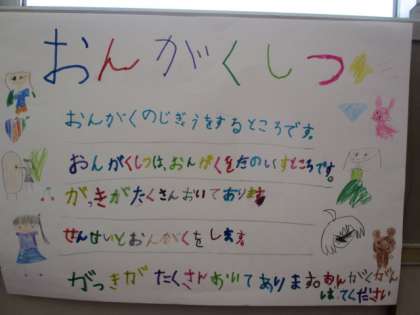 おんがくしつ
おんがくのじぎょうをするところです。
おんがくしつは、おんがくをたのしくすところです。
がっきがたくさんおいてあります
せんせいとおんがくをします。
がっきがたくさんおいてあります。おんがくがん
ばてください